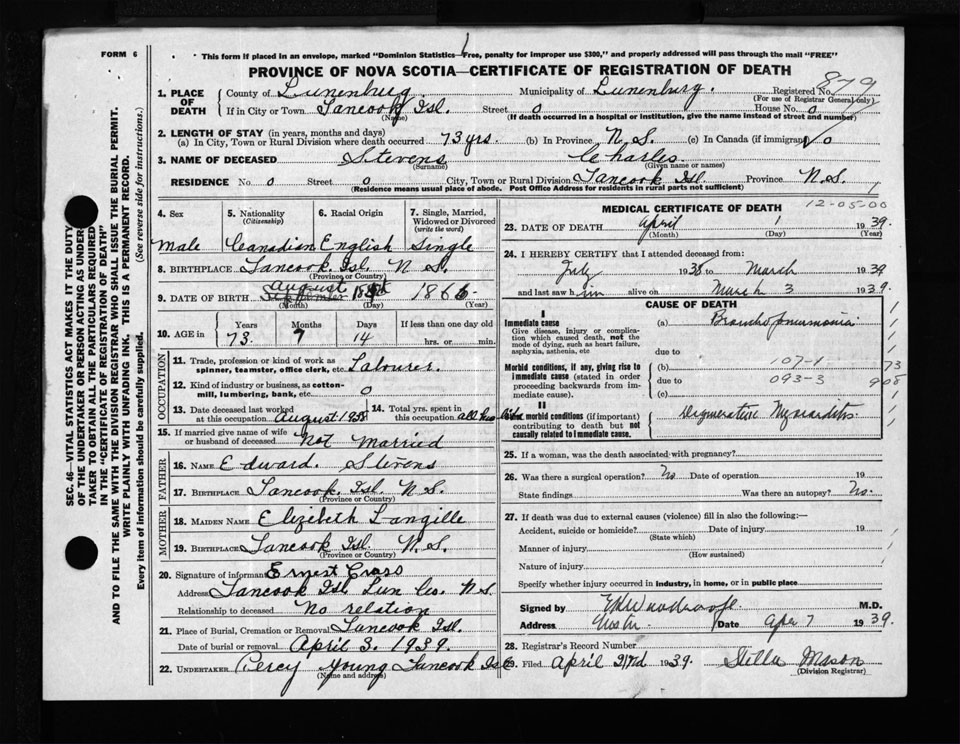 FORM 6
This form if placed in an envelope, marked "Dominion Statistics—Free, penalty for improper use $300," and properly addressed will pass through the mail "FREE"
PROVINCE OF NOVA SCOTIA—CERTIFICATE OF REGISTRATION OF DEATH
879
1. PLACE OF DEATH { County of Lunenburg Municipality of Lunenburg. Registered No.
(For use of Registrar General only)
If in City or Town Tancook Isl. Street 0 House No. 0
(Name) (If death occurred in a hospital or institution, give the name instead of street and number)
2. LENGTH OF STAY (in years, months and days)
(a) In City, Town or Rural Division where death occurred 73 yrs. (b) In Province N.S. (c) In Canada (if immigrant) 0
3. NAME OF DECEASED Stevens Charles
(Surname) (Given name or names)
RESIDENCE No. 0 Street 0 City, Town or Rural Division Tancook Isl. Province N.S.
(Residence means usual place of abode. Post Office Address for residents in rural parts not sufficient)
SEC. 46—VITAL STATISTICS ACT MAKES IT THE DUTY
OF THE UNDERTAKER OR PERSON ACTING AS UNDER-
TAKER TO OBTAIN ALL THE PARTICULARS REQUIRED
IN THE "CERTIFICATE OF REGISTRATION OF DEATH"
AND TO FILE THE SAME WITH THE DIVISION REGISTRAR WHO SHALL ISSUE THE BURIAL PERMIT.
WRITE PLAINLY WITH UNFADING INK. THIS IS A PERMANENT RECORD.
Every item of information should be carefully supplied. (See reverse side for instructions.)
4. Sex 5. Nationality 6. Racial Origin 7. Single, Married,
(Citizenship) Widowed or Divorced
(write the word)
Male Canadian English Single
8. BIRTHPLACE Tancook Isl. N.S.
(Province or Country)
August
9. DATE OF BIRTH 1865
(Month) (Day) (Year)
10. AGE in Years Months Days If less than one day old
73. 7 14 hrs. or min.
OCCUPATION
11. Trade, profession or kind of work as
spinner, teamster, office clerk, etc. Labourer.
12. Kind of industry or business, as cotton-
mill, lumbering, bank, etc. 0
13. Date deceased last worked
at this occupation August 1938
14. Total yrs. spent in
this occupation all his life
15. If married give name of wife
or husband of deceased Not Married
FATHER
16. NAME Edward. Stevens
17. BIRTHPLACE Tancook Isl. N.S.
(Province or Country)
MOTHER
18. MAIDEN NAME Elizibeth Langille
19. BIRTHPLACE Tancook Isl. N.S.
(Province or Country)
20. Signature of informant Ernest Cross
Address Tancook Isl Lun Co. N.S.
Relationship to deceased No relation
21. Place of Burial, Cremation or Removal Tancook Isl.
Date of burial or removal April 3. 1939.
22. UNDERTAKER Percy Young Tancook Isl
(Name and address)
MEDICAL CERTIFICATE OF DEATH
12-05-00
23. DATE OF DEATH April 1 1939.
(Month) (Day) (Year)
24. I HEREBY CERTIFY that I attended deceased from:
July 1938 to March 1939
and last saw him alive on March 3 1939.
CAUSE OF DEATH
I
Immediate cause (a) Bronchopneumonia
Give disease, injury or complica-
tion which caused death, not the
mode of dying, such as heart failure,
asphyxia, asthenia, etc due to
Morbid conditions, if any, giving rise to
immediate cause (stated in order
proceeding backwards from im-
mediate cause).
(b) 107-1 73
due to 093-3 908
(c)
II
Other morbid conditions (if important)
contributing to death but not
causally related to immediate cause.
Degenerative Myocarditis
25. If a woman, was the death associated with pregnancy?
26. Was there a surgical operation? No Date of operation 19
State findings Was there an autopsy? No.
27. If death was due to external causes (violence) fill in also the following:—
Accident, suicide or homicide? Date of injury 19
(State which)
Manner of injury
(How sustained)
Nature of injury
Specify whether injury occurred in industry, in home, or in public place
Signed by M.D.
Address Date Apr 7 1939.
28. Registrar's Record Number
29. Filed April 1939. Stella Mason
(Division Registrar)